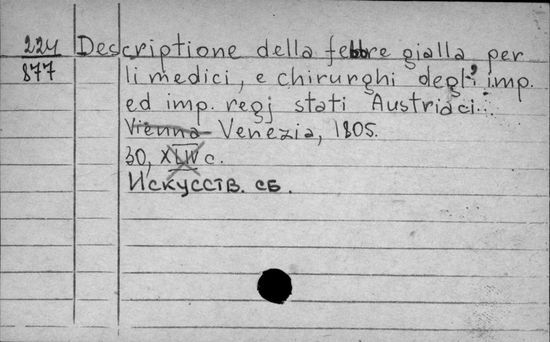 224 Descriptione della febbre gialla per
877 li medici, e chirurghi degl' imp.
ed imp. regj stati Austriaci...
Vienna Venezia, 1805.
30, с.
Искусств. сб.